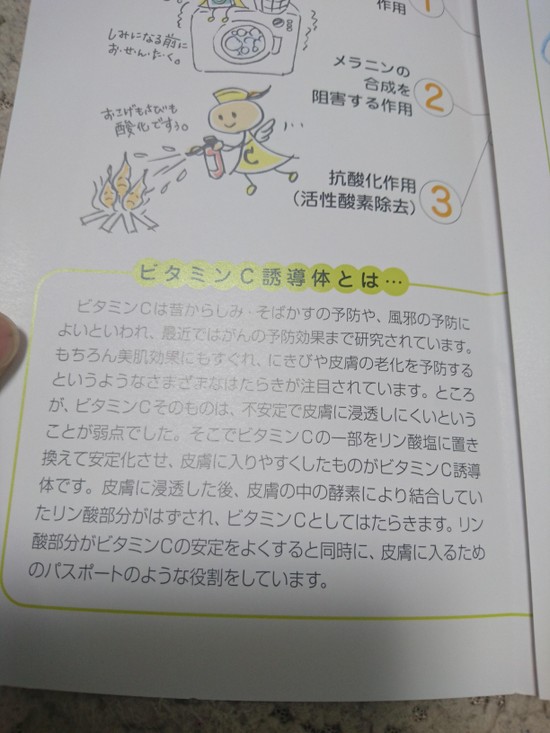 作用
1
しみになる前に
お・せ・ん・た・く。
メラニンの
合成を
阻害する作用
2
おこげもさびも
酸化ですう。
C
抗酸化作用
(活性酸素除去)
3
ビタミンC誘導体とは…
ビタミンCは昔からしみ・そばかすの予防や、風邪の予防に
よいといわれ、最近ではがんの予防効果まで研究されています。
もちろん美肌効果にもすぐれ、にきびや皮膚の老化を予防する
というようなさまざまなはたらきが注目されています。ところ
が、ビタミンCそのものは、不安定で皮膚に浸透しにくいという
ことが弱点でした。そこでビタミンCの一部をリン酸塩に置き
換えて安定化させ、皮膚に入りやすくしたものがビタミンC誘導
体です。皮膚に浸透した後、皮膚の中の酵素により結合してい
たリン酸部分がはずされ、ビタミンCとしてはたらきます。リン
酸部分がビタミンCの安定をよくすると同時に、皮膚に入るため
のパスポートのような役割をしています。